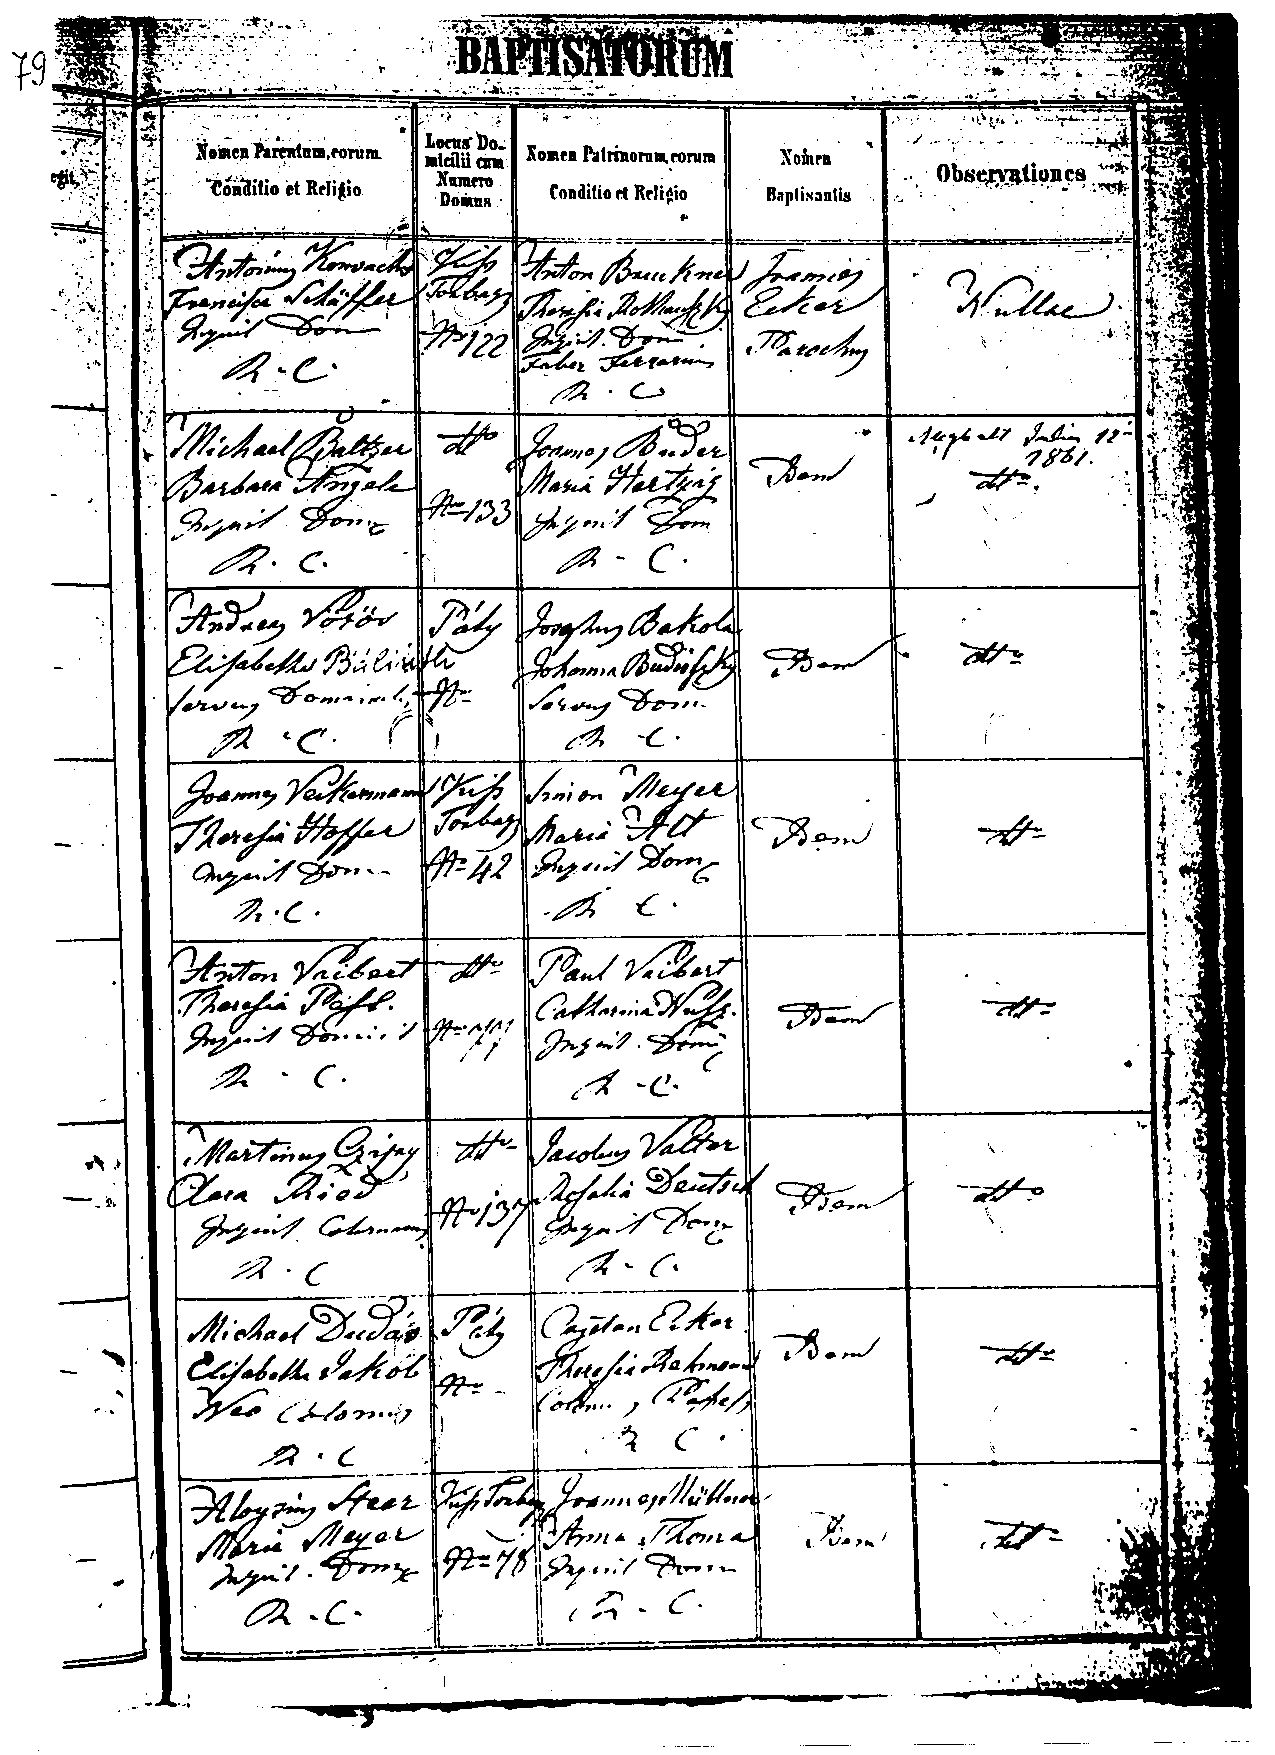 79
BAPTISATORUM
Nomen Parentum, eorum
Conditio et Religio
Locus Do-
micilii cum
Numero
Domus
Nomen Patrinorum, eorum
Conditio et Religio
Nomen
Baptisantis
Observationes
Antonius
Francisca Schäffer
Inquil Dom
R. C.
Kiss
Torbágy
Nro 122
Anton Bruckner
Theresia
Inquil. Dom
Faber Ferrarius
R. C.
Francisc
Ecker
Parochus
Nullae
Michael Baltzer
Barbara Angele
Inquil Dom
R. C.
dtto
Nro 133
Joannes Buder
Maria Hertzig
Inquil Dom
R. C.
Idem
Meghalt Julius 12
1861.
dtto.
Andreas Vörös
Elisabetha Bálinth
Servus Dominal
R. C.
Páty
Nro
Josephus Bakola
Johanna
Servus Dom
R. C.
Idem
dtto
Joannes Veikermann
Theresia Hoffer
Inquil Dom
R. C.
Kiss
Torbágy
Nro 42
Simon Meyer
Maria Alt
Inquil Dom
R. C.
Idem
dtto
Anton Vaibert
Theresia
Inquil Dominil
R. C.
dtto
Nro
Paul Vaibert
Catharina
Inquil. Dom
R. C.
Idem
dtto
Martinus
Clara Ried
Inquil
R. C
dtto
Nro 137
Jacobus Valter
Rosalia Deutsch
Inquil Dom
R. C.
Idem
dtto
Michael Dudás
Elisabetha Jakob
Neo Colonus
R. C
Páty
Nro
Cajetan Ecker
Theresia
R C.
Idem
dtto
Aloysius Steer
Maria Meyer
Inquil. Dom
R. C.
Kiss Torbágy
Nro 78
Joannes Müllner
Anna Thoma
Inquil Dom
R. C.
Idem
dtto